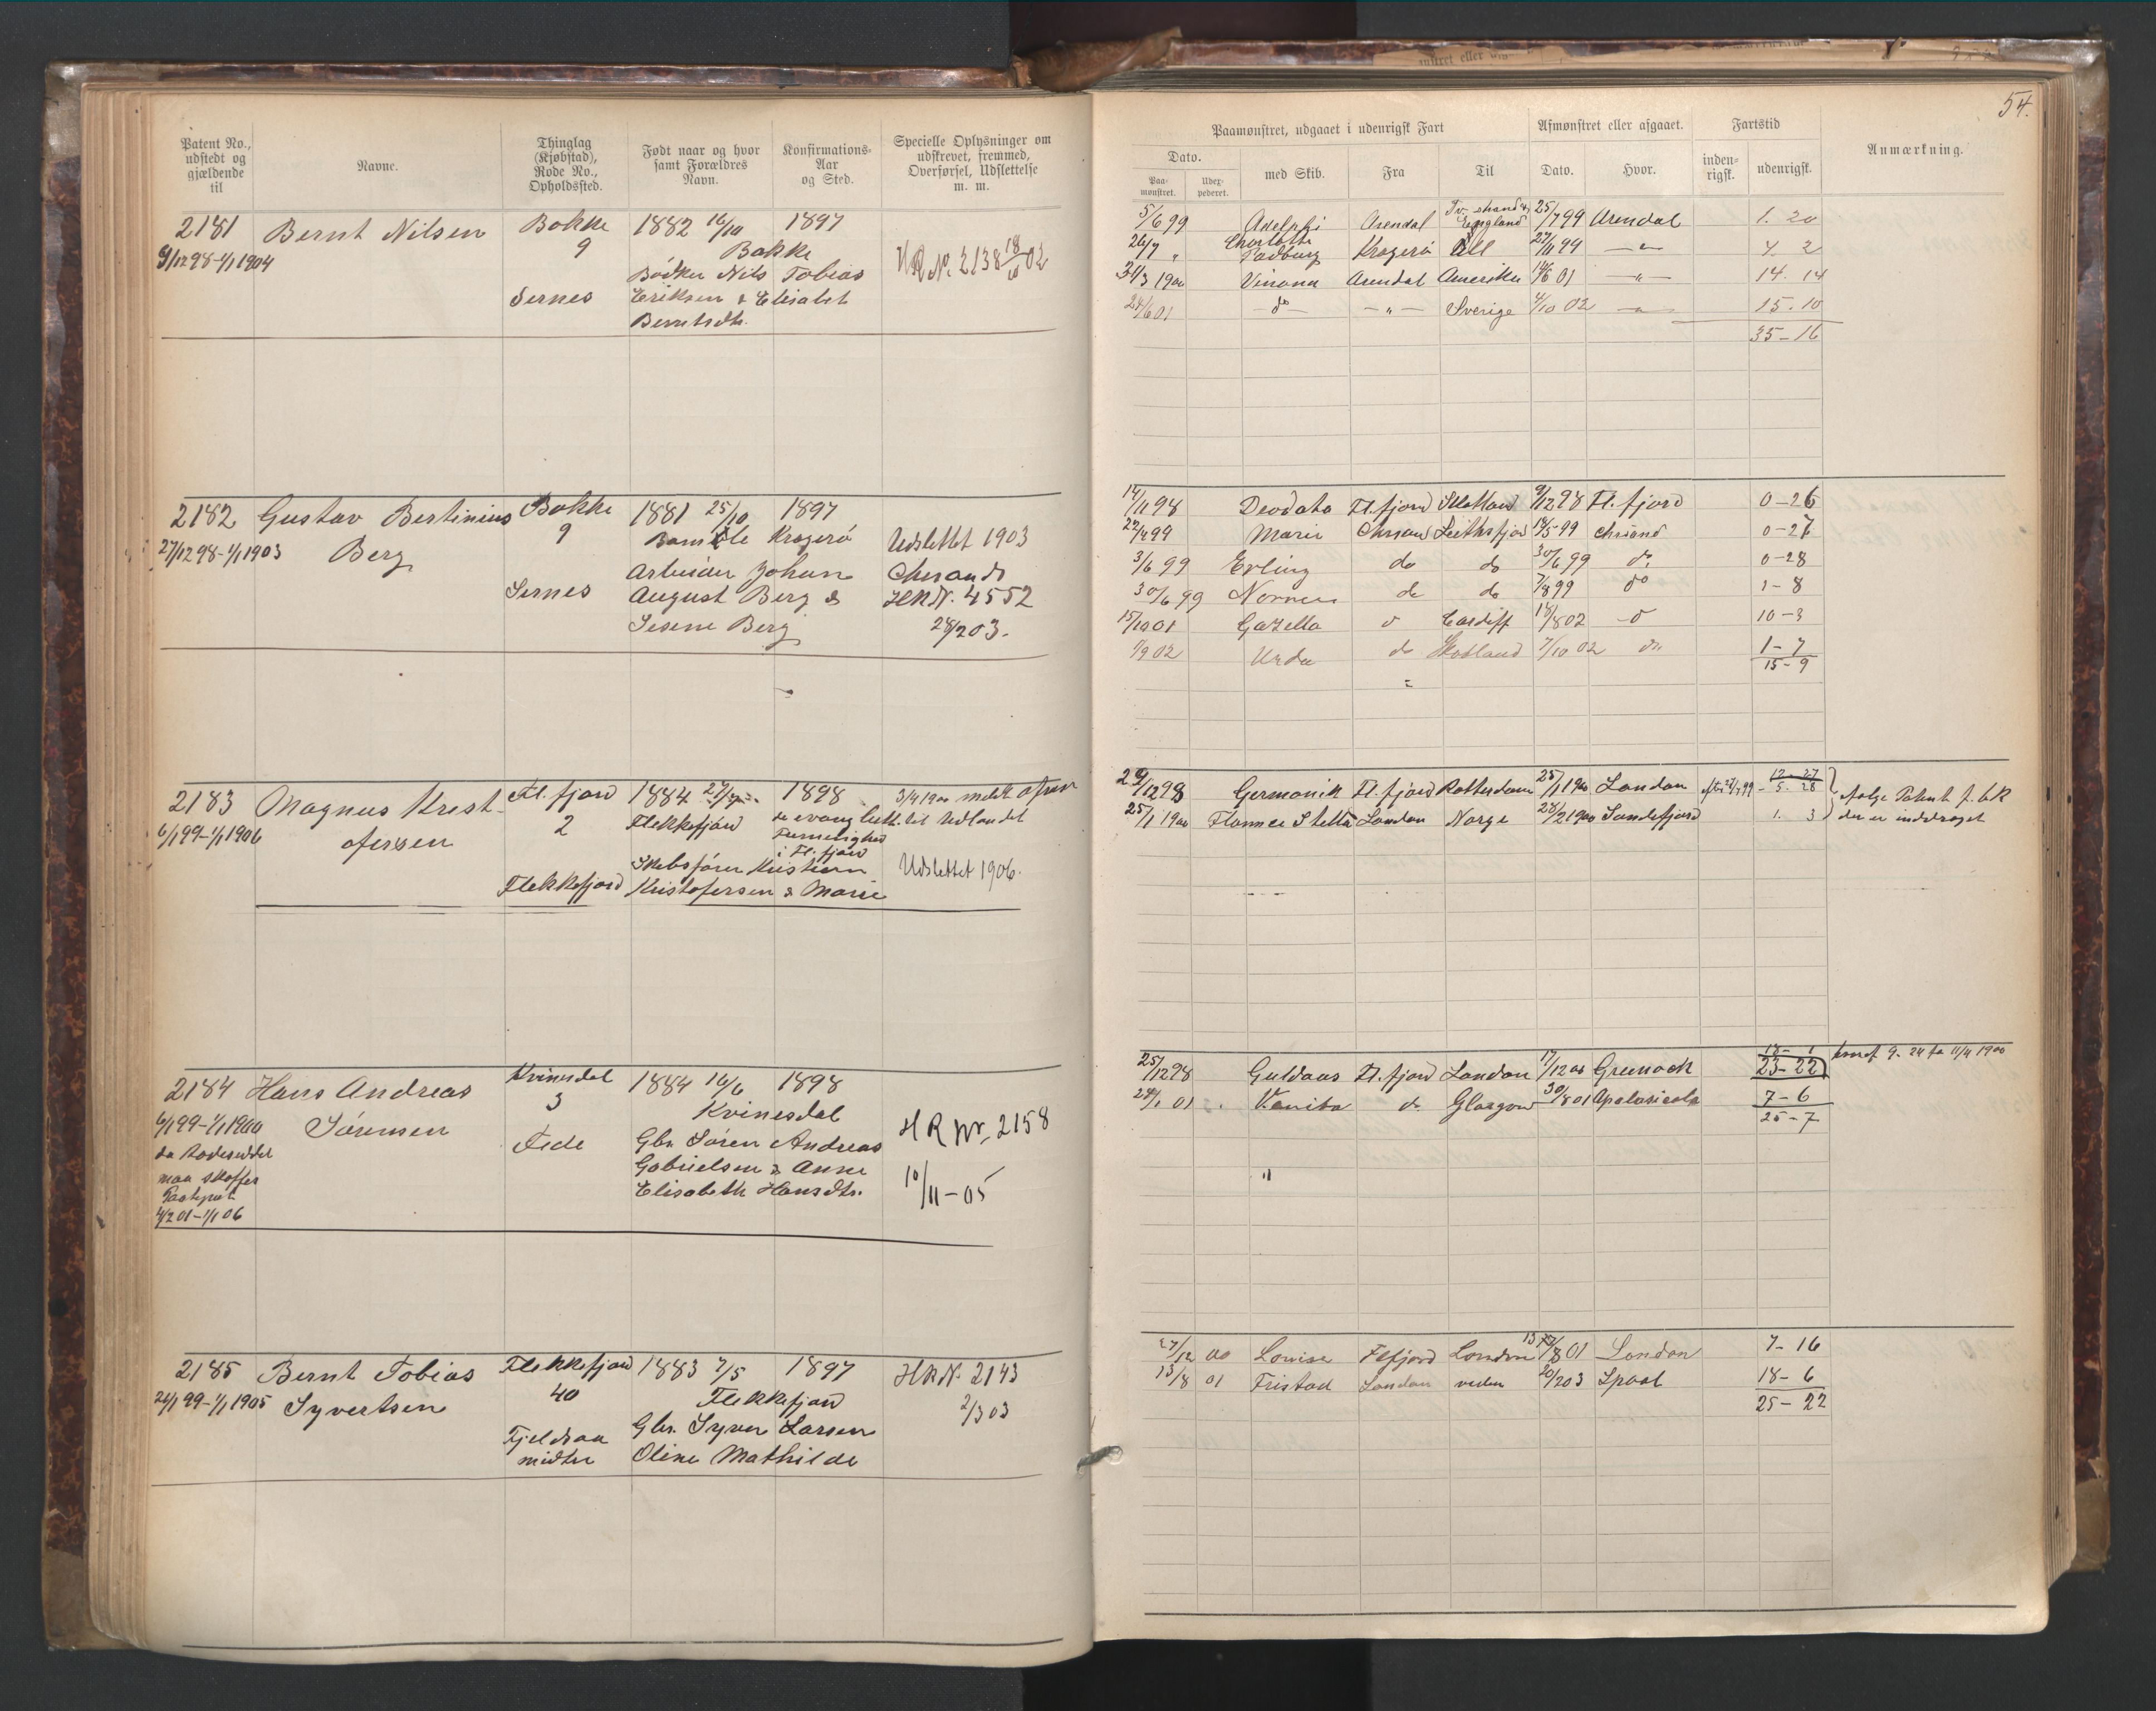 54.
Patent No., udstedt og gjældende til
Navne.
Thinglag (Kjøbstad), Rode No., Opholdssted.
Født naar og hvor samt Forældres Navn.
Konfirmations-Aar og Sted.
Specielle Oplysninger om udskrevet, fremmed, Overførsel, Udslettelse m. m.
Paamønstret, udgaaet i udenrigsk Fart
Afmønstret eller afgaaet.
Fartstid
Anmærkning.
Dato.
Paa-mønstret.
med Skib.
Fra
Til
Dato.
Hvor.
inden-rigsk.
udenrigsk.
2181 Bernt Nilsen Bakke 1882 16/10 1897
9/12 98-1/1 1904 9 Bakke HR No. 2138 18/10 02
Bødker Nils Tobias
Sernes Eriksen & Elisabet
Berntsdtr.
5/6 99 Adelphi Arendal England 25/7 99 Arendal 1. 20
26/7 " Charlotte Padburg Kragerø 27/11 99 -"- 4. 2
31/3 1900 Vinona Arendal Amerika 14/6 01 -"- 14. 14
24/6 01 - do - - " - Sverige 4/10 02 -"- 15. 10
35-16
2182 Gustav Bertinius Bakke 1881 25/10 1897
27/12 98-1/1 1903 Berg 9 Bamble Kragerø Udslettet 1903
Arbeider Johan Chrsands
Sernes August Berg & HR N. 4552
Berg 28/2 03.
14/11 98 Deodata Fl.fjord Skotland 9/12 98 Fl.fjord 0-26
22/4 99 Marie Chrsand 18/5 99 Chrsand 0-27
3/6 99 Erling do do 30/6 99 do 0-28
30/6 99 Nornen do do 7/8 99 do 1-8
15/10 01 Gazella do Cardiff 18/8 02 do 10-3
1/9 02 Urda do Skotland 7/10 02 do 1-7
15-9
2183 Magnus Krist- Fl.fjord 1884 1898 3/4 1900
6/1 99-1/1 1906 ofersen 2 Flekkefjord evang luth. til Udlandet
Frimenighed
i Fl.fjord
Skibsfører Kristian Udslettet 1906.
Flekkefjord Kristofersen & Marie
29/12 98 Germanik Fl.fjord Rotterdam 25/1 1900 London 12-27
5-28
25/1 1900 Florence Stella London Norge 28/2 1900 Sandefjord 1. 3
følge Patent f. 6R
der er inddraget
2184 Hans Andreas Kvinesdal 1884 16/6 1898
6/1 99-1/1 1900 Sørensen 3 Kvinesdal HR Nr. 2158
Fede Gbr. Søren Andreas
maa skaffes Gabrielsen & Anne 10/11-05
Elisabeth Hansdtr.
4/2 01-1/1 06
25/12 98 Guldaas Fl.fjord London 17/12 00 Greenock 18-1
23-22
24/1 01 Vanita do Glasgow 30/8 01 Apalasicola 7-6
25-7
2185 Bernt Tobias Flekkefjord 1883 7/5 1897 HR N. 2143
24/1 99-1/1 1905 Syvertsen 40 Flekkefjord 2/3 03
Fjeldsaa Gbr. Syver Larsen
midtre Oline Mathilde
27/12 00 Lovise Flfjord London 13/8 01 London 7-16
13/8 01 Tristad London 20/2 03 18-6
25-22